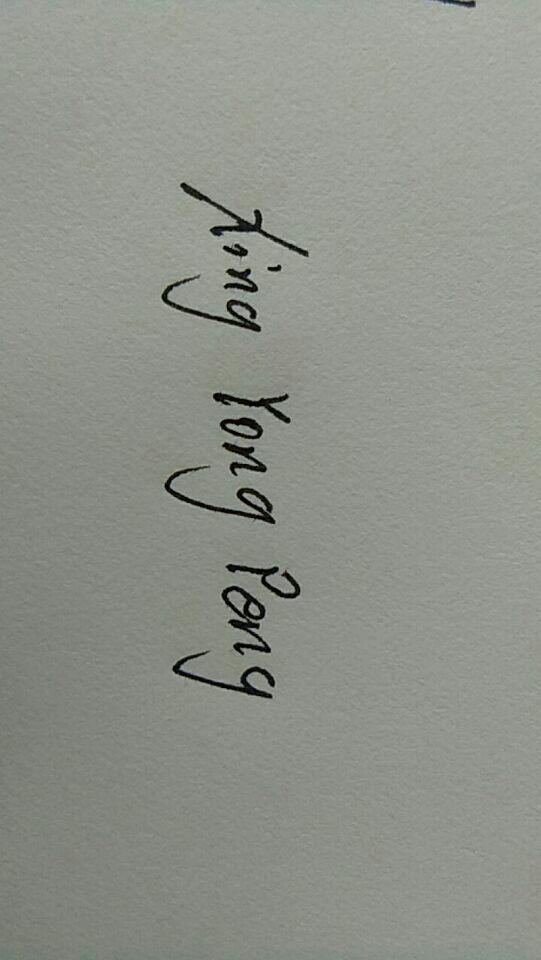 Xing Yong Peng